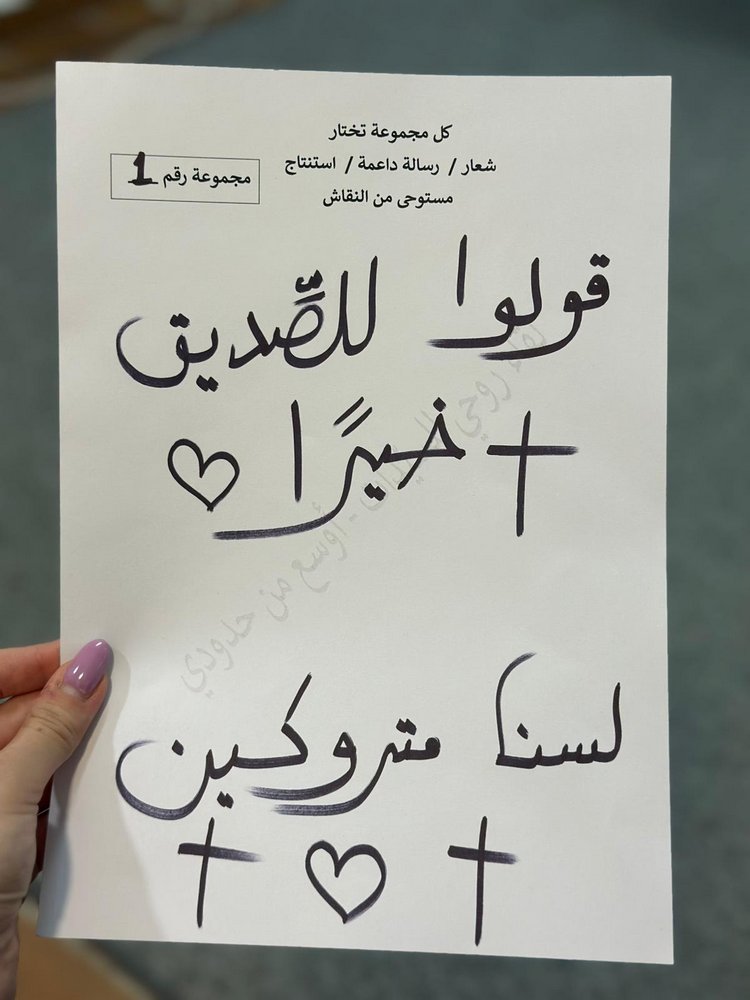 كل مجموعة تختار
شعار / رسالة داعمة / استنتاج
مستوحى من النقاش
مجموعة رقم 1
قولوا للصِّديق
خيرًا
لقاء روحي - أوسع من حدودي
لسنا متروكين